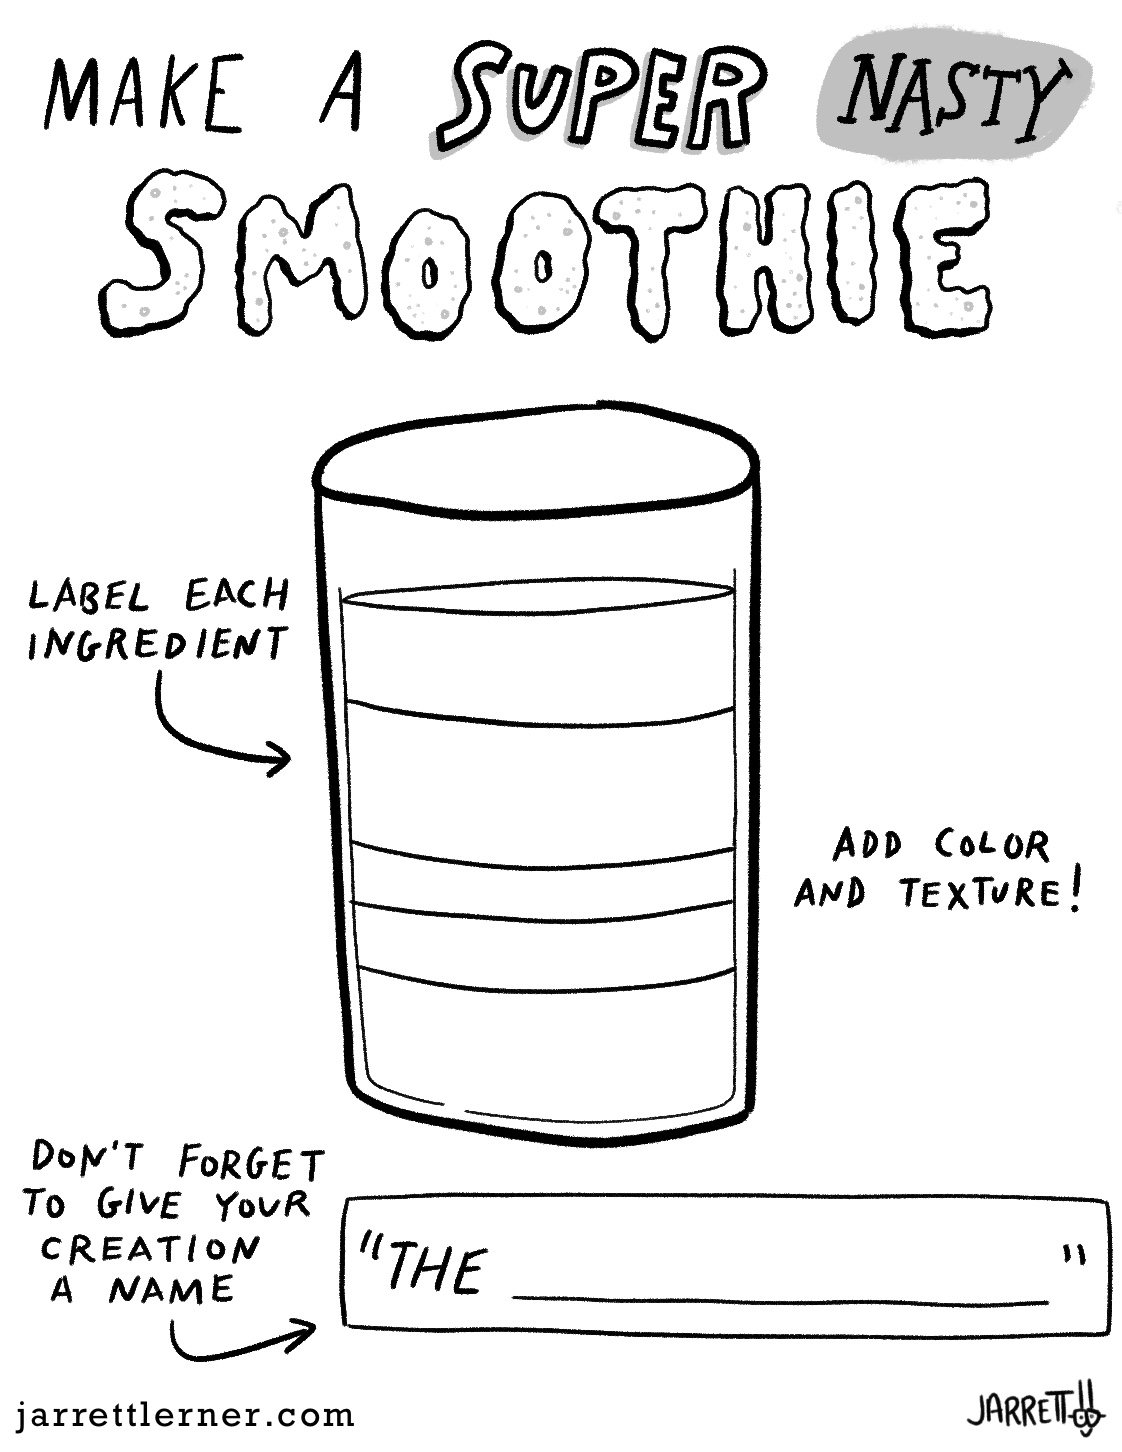 MAKE A SUPER NASTY
SMOOTHIE
LABEL EACH
INGREDIENT
ADD COLOR
AND TEXTURE!
DON'T FORGET
TO GIVE YOUR
CREATION
A NAME
"THE ___________"
jarrettlerner.com
JARRETT